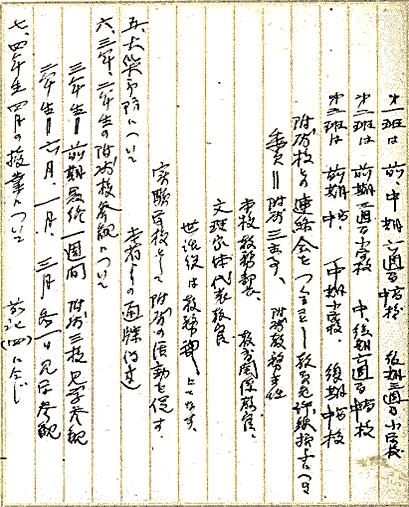 第一班は 前、中期六週間中高校 後期三週間小学校
第二班は 前期三週間小学校 中、後期六週間中高校
第三班は 前期中高、中期小学校、後期中高校
附属校との連絡会をつくること
委員＝附属三主事、附属教務主任
本校教務部長、教育関係教官、
文理家体代表教官
世話役は教務部とする。
実験学校として附属の活動を促す。
五、火災予防について
六、三年、二年生の附属校参観について
三年生＝前期最終一週間 附属三校見学参観
二年生＝六月、一月、三月 各一日見学参観
七、四年生四月の授業について 前記(四)に同じ